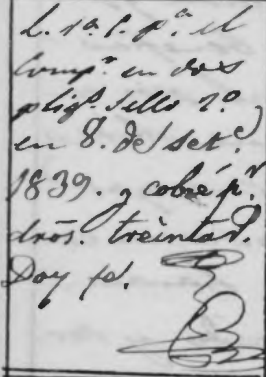 L. 1ª. C. pª. el
Compr. en dos
pligs. Sello 1º.
en 8. de Sete.
1839. y cobré pr.
drōs. treinta rs.
Doy fé.